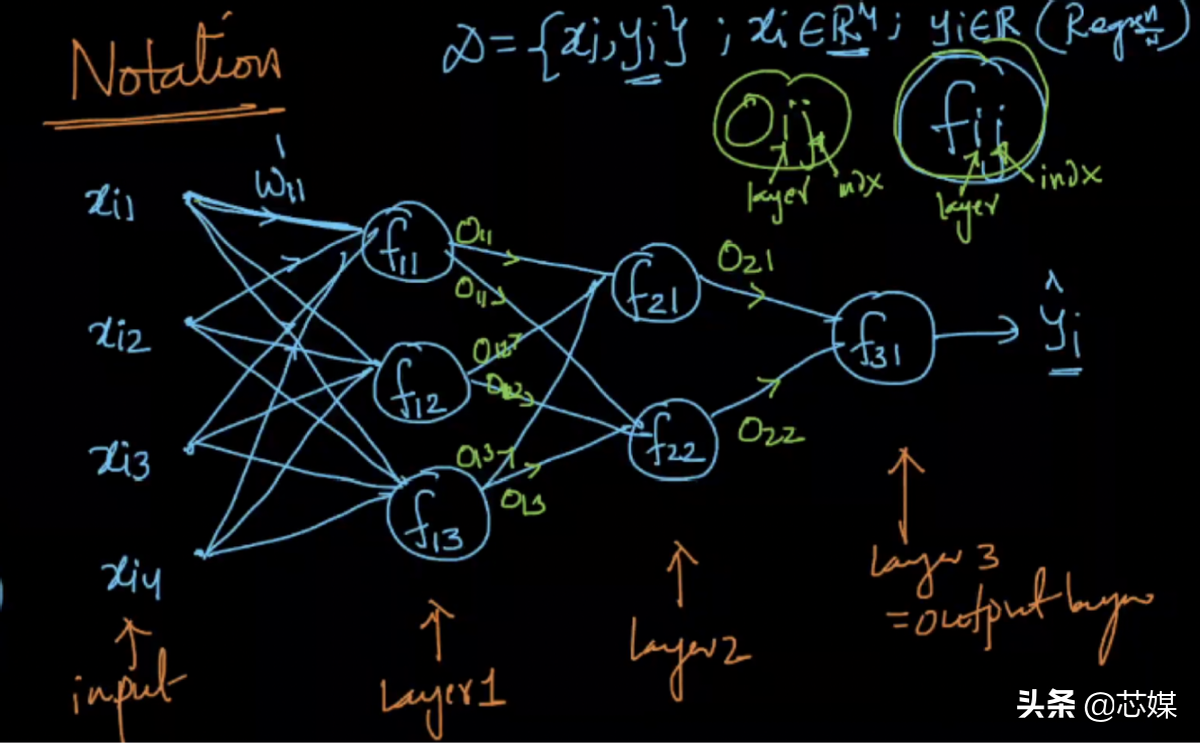 Notation
D = {xi, yi} ; xi ∈ R⁴ ; yi ∈ R (Regrsn)
Oij
fij
layer indx
layer indx
W¹11
xi1
xi2
xi3
xi4
f11
f12
f13
O11
O11
O12
O12
O13
O13
f21
f22
O21
O22
f31
ŷi
input
Layer 1
Layer 2
Layer 3
= output layer
头条 @芯媒